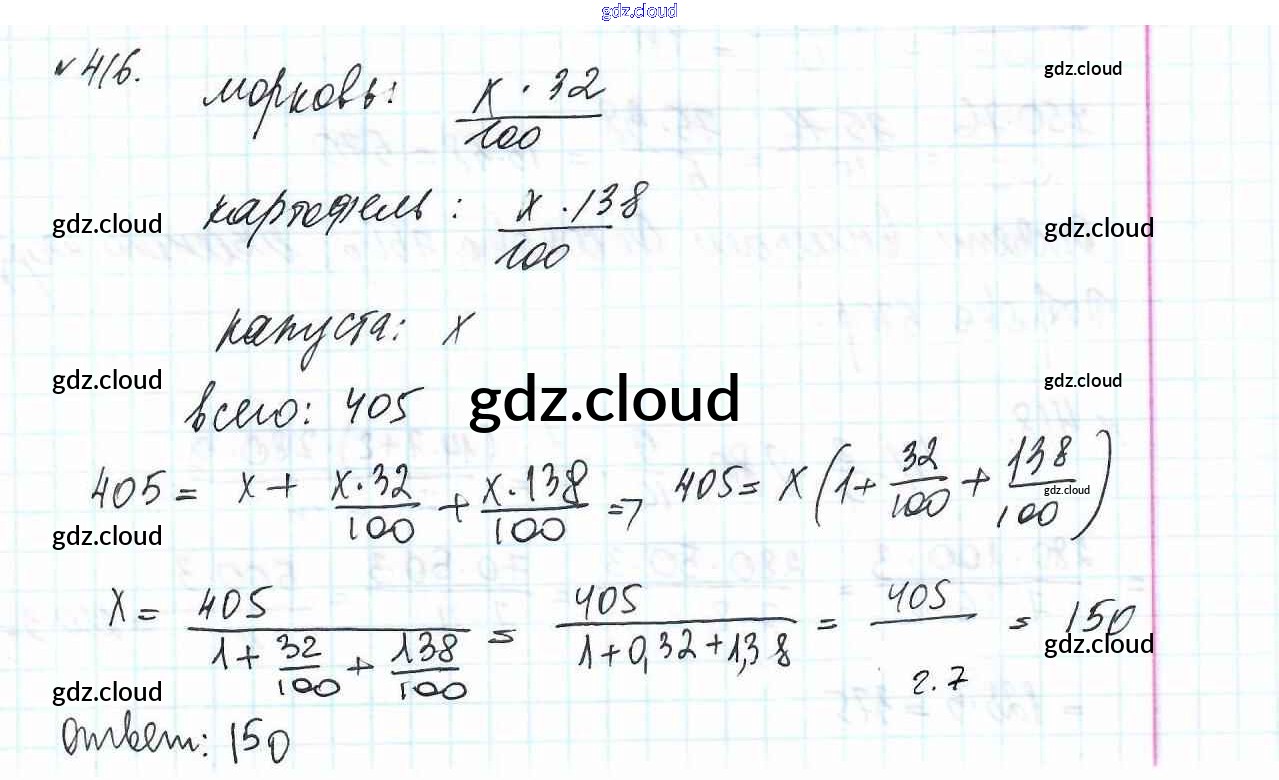 gdz.cloud
№ 416.
морковь: x · 32 / 100
gdz.cloud
картофель: x · 138 / 100
gdz.cloud
gdz.cloud
капуста: x
gdz.cloud
gdz.cloud
всего: 405
gdz.cloud
405 = x + x·32/100 + x·138/100 => 405 = x (1 + 32/100 + 138/100)
gdz.cloud
gdz.cloud
x = 405 / (1 + 32/100 + 138/100) = 405 / (1 + 0,32 + 1,38) = 405 / 2.7 = 150
gdz.cloud
gdz.cloud
ответ: 150